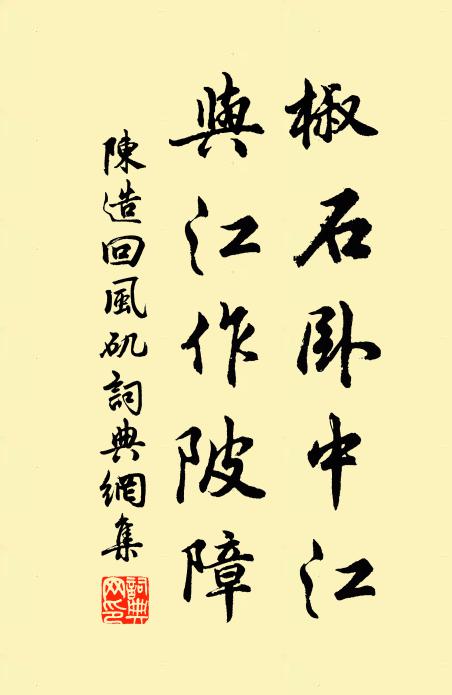 椒石卧中江
與江作陂障
陳造回風矶詞典網集
詞典網印